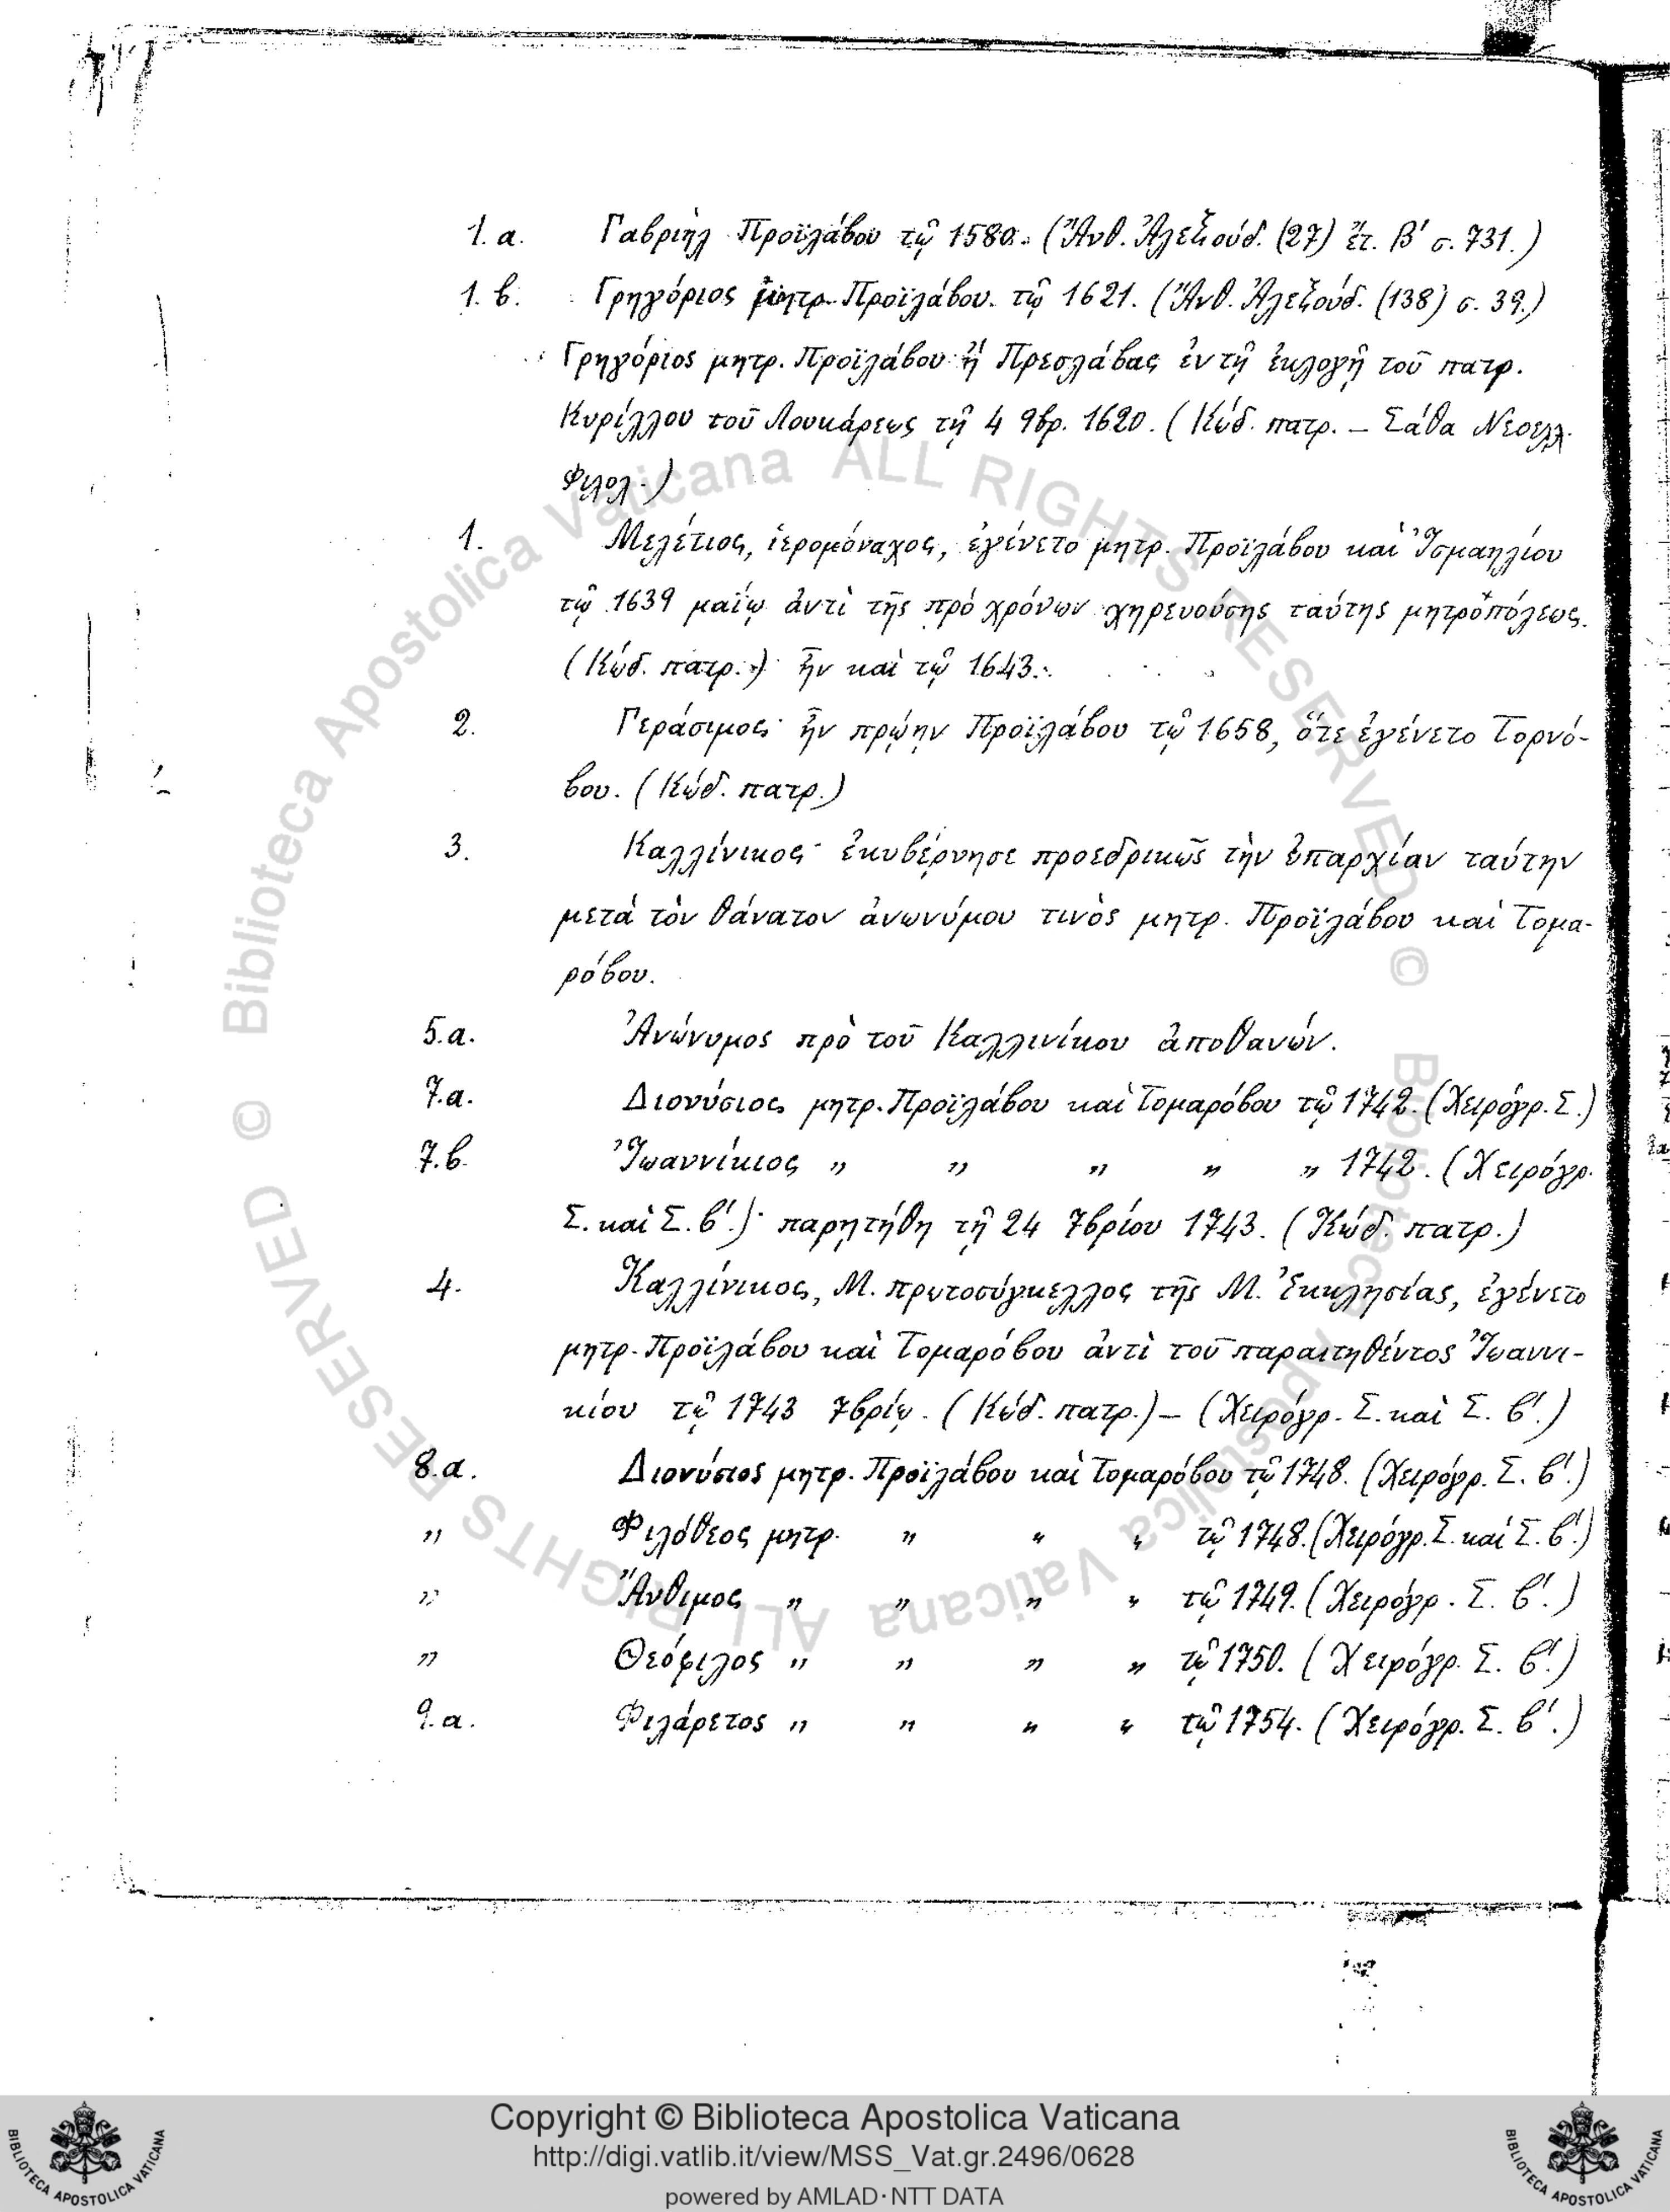 1. α. Γαβριὴλ Προϊλάβου τῷ 1580. (Ἄνθ. Ἀλεξούδ. (27) ἔτ. Β′ σ. 731.)
1. β. Γρηγόριος μητρ. Προϊλάβου. τῷ 1621. (Ἄνθ. Ἀλεξούδ. (138) σ. 39.)
Γρηγόριος μητρ. Προϊλάβου ἢ Πρεσλάβας ἐν τῇ ἐκλογῇ τοῦ πατρ.
Κυρίλλου τοῦ Λουκάρεως τῇ 4 9βρ. 1620. (Κώδ. πατρ. – Σάθα Νεοελλ.
Φιλολ.)
1. Μελέτιος, ἱερομόναχος, ἐγένετο μητρ. Προϊλάβου καὶ Ἰσμαηλίου
τῷ 1639 μαΐῳ ἀντὶ τῆς πρὸ χρόνων χηρευούσης ταύτης μητροπόλεως.
(Κώδ. πατρ.) ἦν καὶ τῷ 1643.
2. Γεράσιμος· ἦν πρῴην Προϊλάβου τῷ 1658, ὅτε ἐγένετο Τορνό-
βου. (Κώδ. πατρ.)
3. Καλλίνικος· ἐκυβέρνησε προεδρικῶς τὴν ἐπαρχίαν ταύτην
μετὰ τὸν θάνατον ἀνωνύμου τινὸς μητρ. Προϊλάβου καὶ Τομα-
ρόβου.
5.α. Ἀνώνυμος πρὸ τοῦ Καλλινίκου ἀποθανών.
7.α. Διονύσιος μητρ. Προϊλάβου καὶ Τομαρόβου τῷ 1742. (Χειρόγρ. Σ.)
7.β. Ἰωαννίκιος „ „ „ „ „ 1742. (Χειρόγρ.
Σ. καὶ Σ. β′.)· παρῃτήθη τῇ 24 7βρίου 1743. (Κώδ. πατρ.)
4. Καλλίνικος, Μ. πρωτοσύγκελλος τῆς Μ. Ἐκκλησίας, ἐγένετο
μητρ. Προϊλάβου καὶ Τομαρόβου ἀντὶ τοῦ παραιτηθέντος Ἰωαννι-
κίου τῷ 1743 7βρίῳ. (Κώδ. πατρ.) – (Χειρόγρ. Σ. καὶ Σ. β′.)
8.α. Διονύσιος μητρ. Προϊλάβου καὶ Τομαρόβου τῷ 1748. (Χειρόγρ. Σ. β′.)
„ Φιλόθεος μητρ. „ „ „ τῷ 1748. (Χειρόγρ. Σ. καὶ Σ. β′.)
„ Ἄνθιμος „ „ „ „ τῷ 1749. (Χειρόγρ. Σ. β′.)
„ Θεόφιλος „ „ „ „ τῷ 1750. (Χειρόγρ. Σ. β′.)
9.α. Φιλάρετος „ „ „ „ τῷ 1754. (Χειρόγρ. Σ. β′.)
© Biblioteca Apostolica Vaticana ALL RIGHTS RESERVED © Biblioteca Apostolica Vaticana ALL RIGHTS RESERVED
Copyright © Biblioteca Apostolica Vaticana
http://digi.vatlib.it/view/MSS_Vat.gr.2496/0628
powered by AMLAD·NTT DATA
BIBLIOTECA APOSTOLICA VATICANA
BIBLIOTECA APOSTOLICA VATICANA